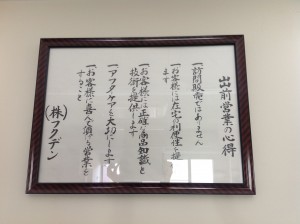 出前営業の心得
一訪問販売ではありません
一お客様には在宅の利便性を提
します
一お客様には正確な商品知識と
技術を提供します
一アフタケアを大切にします
一お客様に喜んで頂ける営業を
すること
(株)フクデン